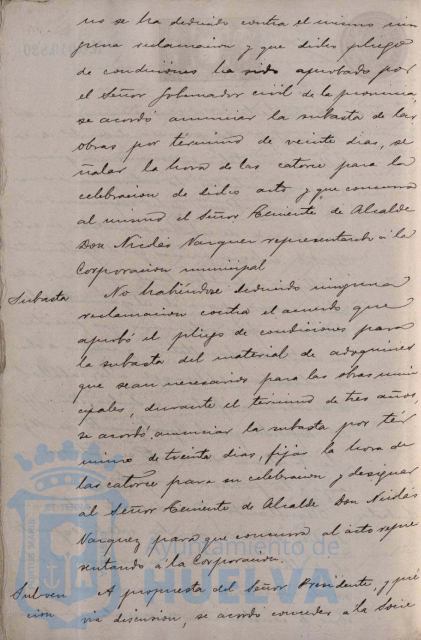 no se ha deducido contra el mismo nin
guna reclamacion y que dicho pliego
de condiciones ha sido aprobado por
el Señor Gobernador civil de la provincia,
se acordó anunciar la subasta de las
obras por término de veinte dias, se
ñalar la hora de las catorce para la
celebracion de dicho acto y que concurra
al mismo el Señor Teniente de Alcalde
Don Nicolás Vazquez representando á la
Corporacion municipal
Subasta
No habiéndose deducido ninguna
reclamacion contra el acuerdo que
aprobó el pliego de condiciones para
la subasta del material de adoquines
que sean necesarios para las obras muni
cipales, durante el término de tres años,
se acordó, anunciar la subasta por tér
mino de treinta dias, fijar la hora de
las catorce para su celebracion y designar
al Señor Teniente de Alcalde Don Nicolás
Vazquez para que concurra al acto repre
sentando á la Corporacion.
Subven
cion
A propuesta del Señor Presidente, y pré
via discusion, se acordó conceder á la Socie
Ayuntamiento de
HUELVA